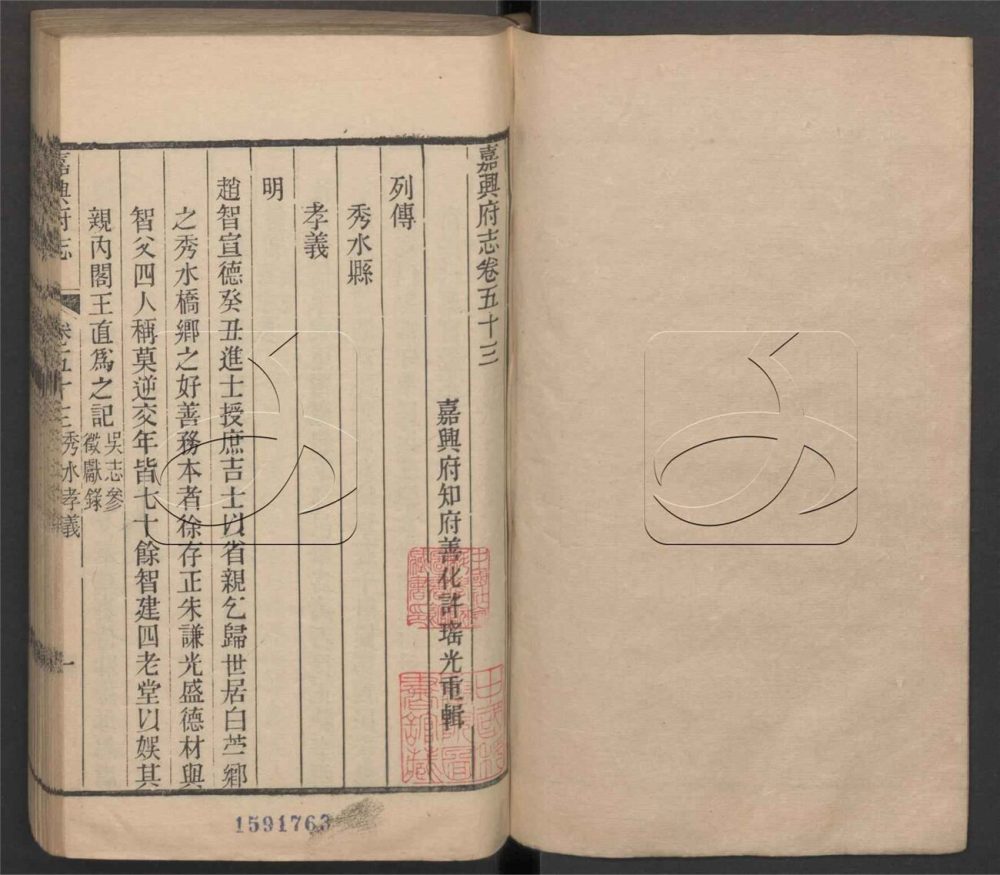 嘉興府志卷五十三
嘉興府知府善化許瑤光重輯
列傳
秀水縣
孝義
明
趙智宣德癸丑進士授庶吉士以省親乞歸世居白苧鄉
之秀水橋鄉之好善務本者徐存正朱謙光盛德材與
智父四人稱莫逆交年皆七十餘智建四老堂以娛其
親內閣王直爲之記
吳志參
徵獻錄
嘉興府志
卷五十三
秀水孝義
一
1591763